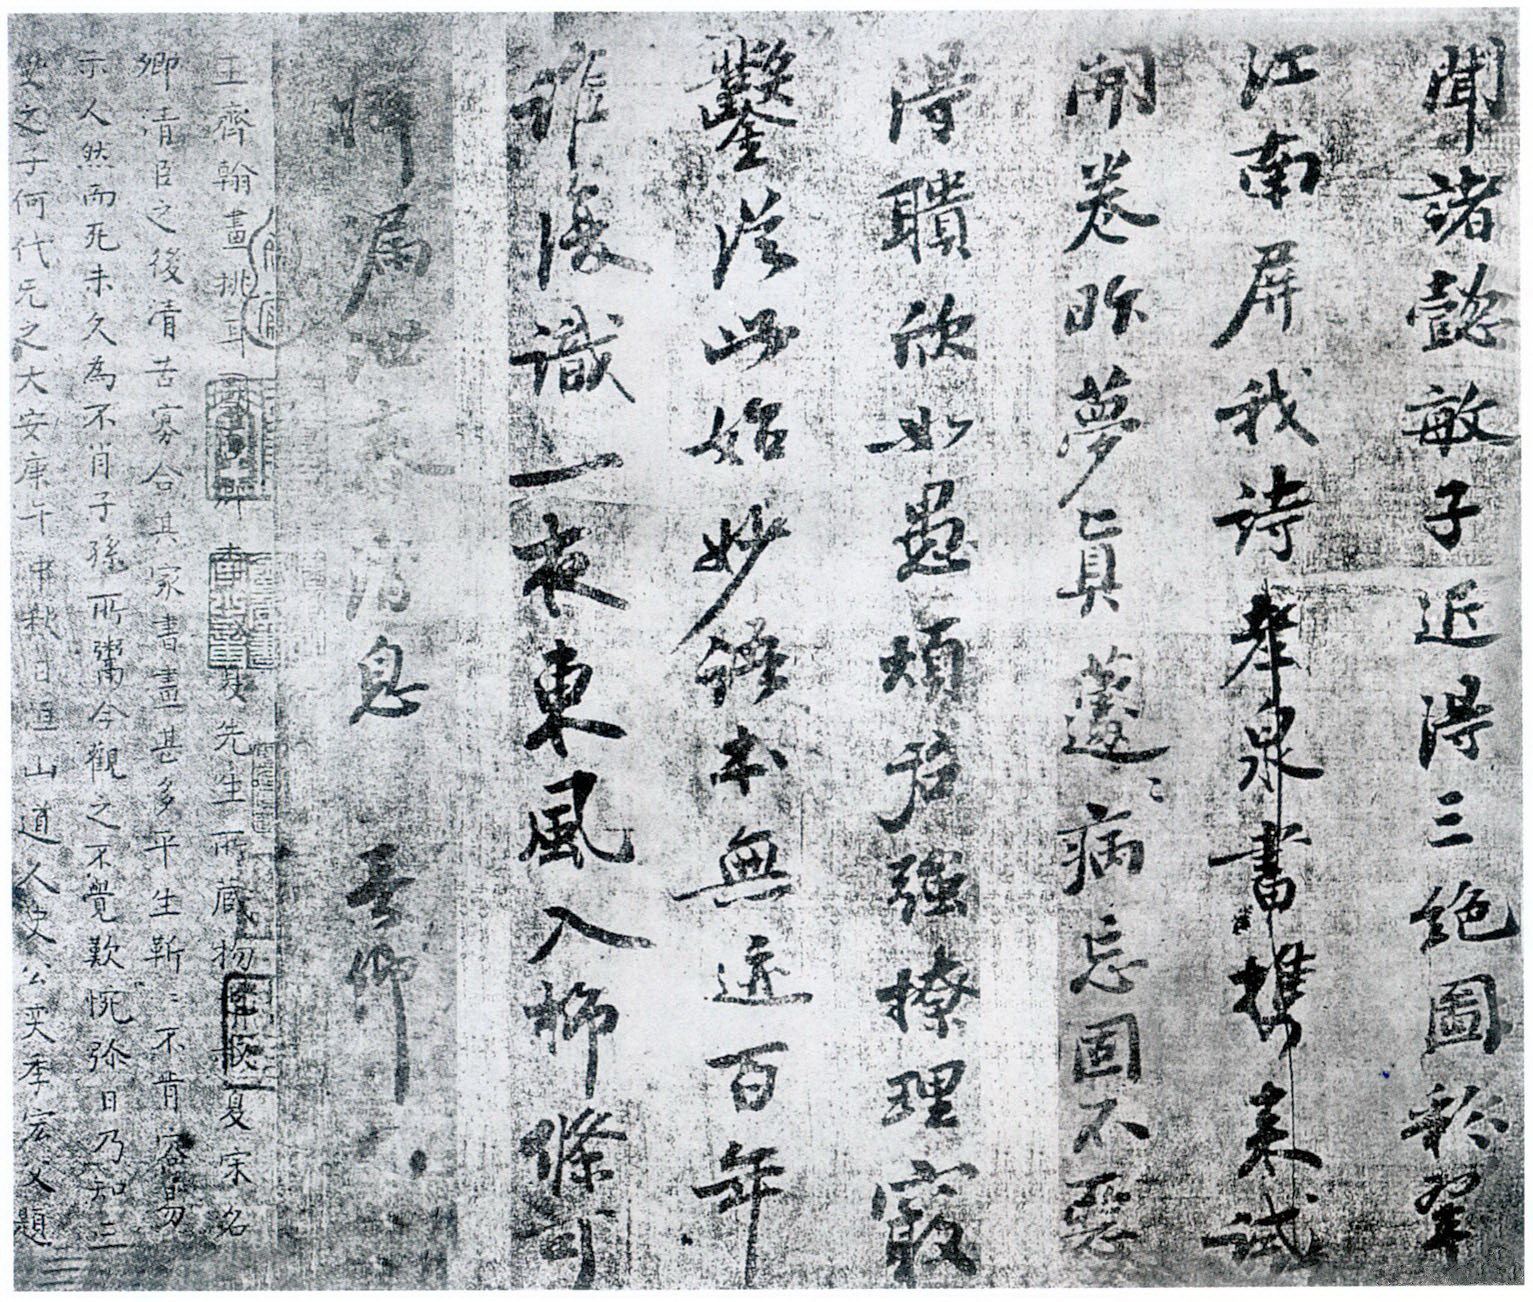 聞諸懿敏子近得三絕圖於翠
江南屏我詩奉泉書攜來試
開卷昨夢真蘧〻病忘固不惡
得聵欣如愚煩
強撩理寂
鑿從此始妙語本無迹百年
誰復識一夜東風入柳條可
消息
王齊翰畫挑耳
先生所藏物
夏宋名
卿清臣之後清苦寡合其家書畫甚多平生靳〻不肯容易
示人然而死未久為不肖子孫所鬻今觀之不覺歎惋弥日乃知三
世之子何代无之大安庚午中秋日
山道人史公奕季宏父題